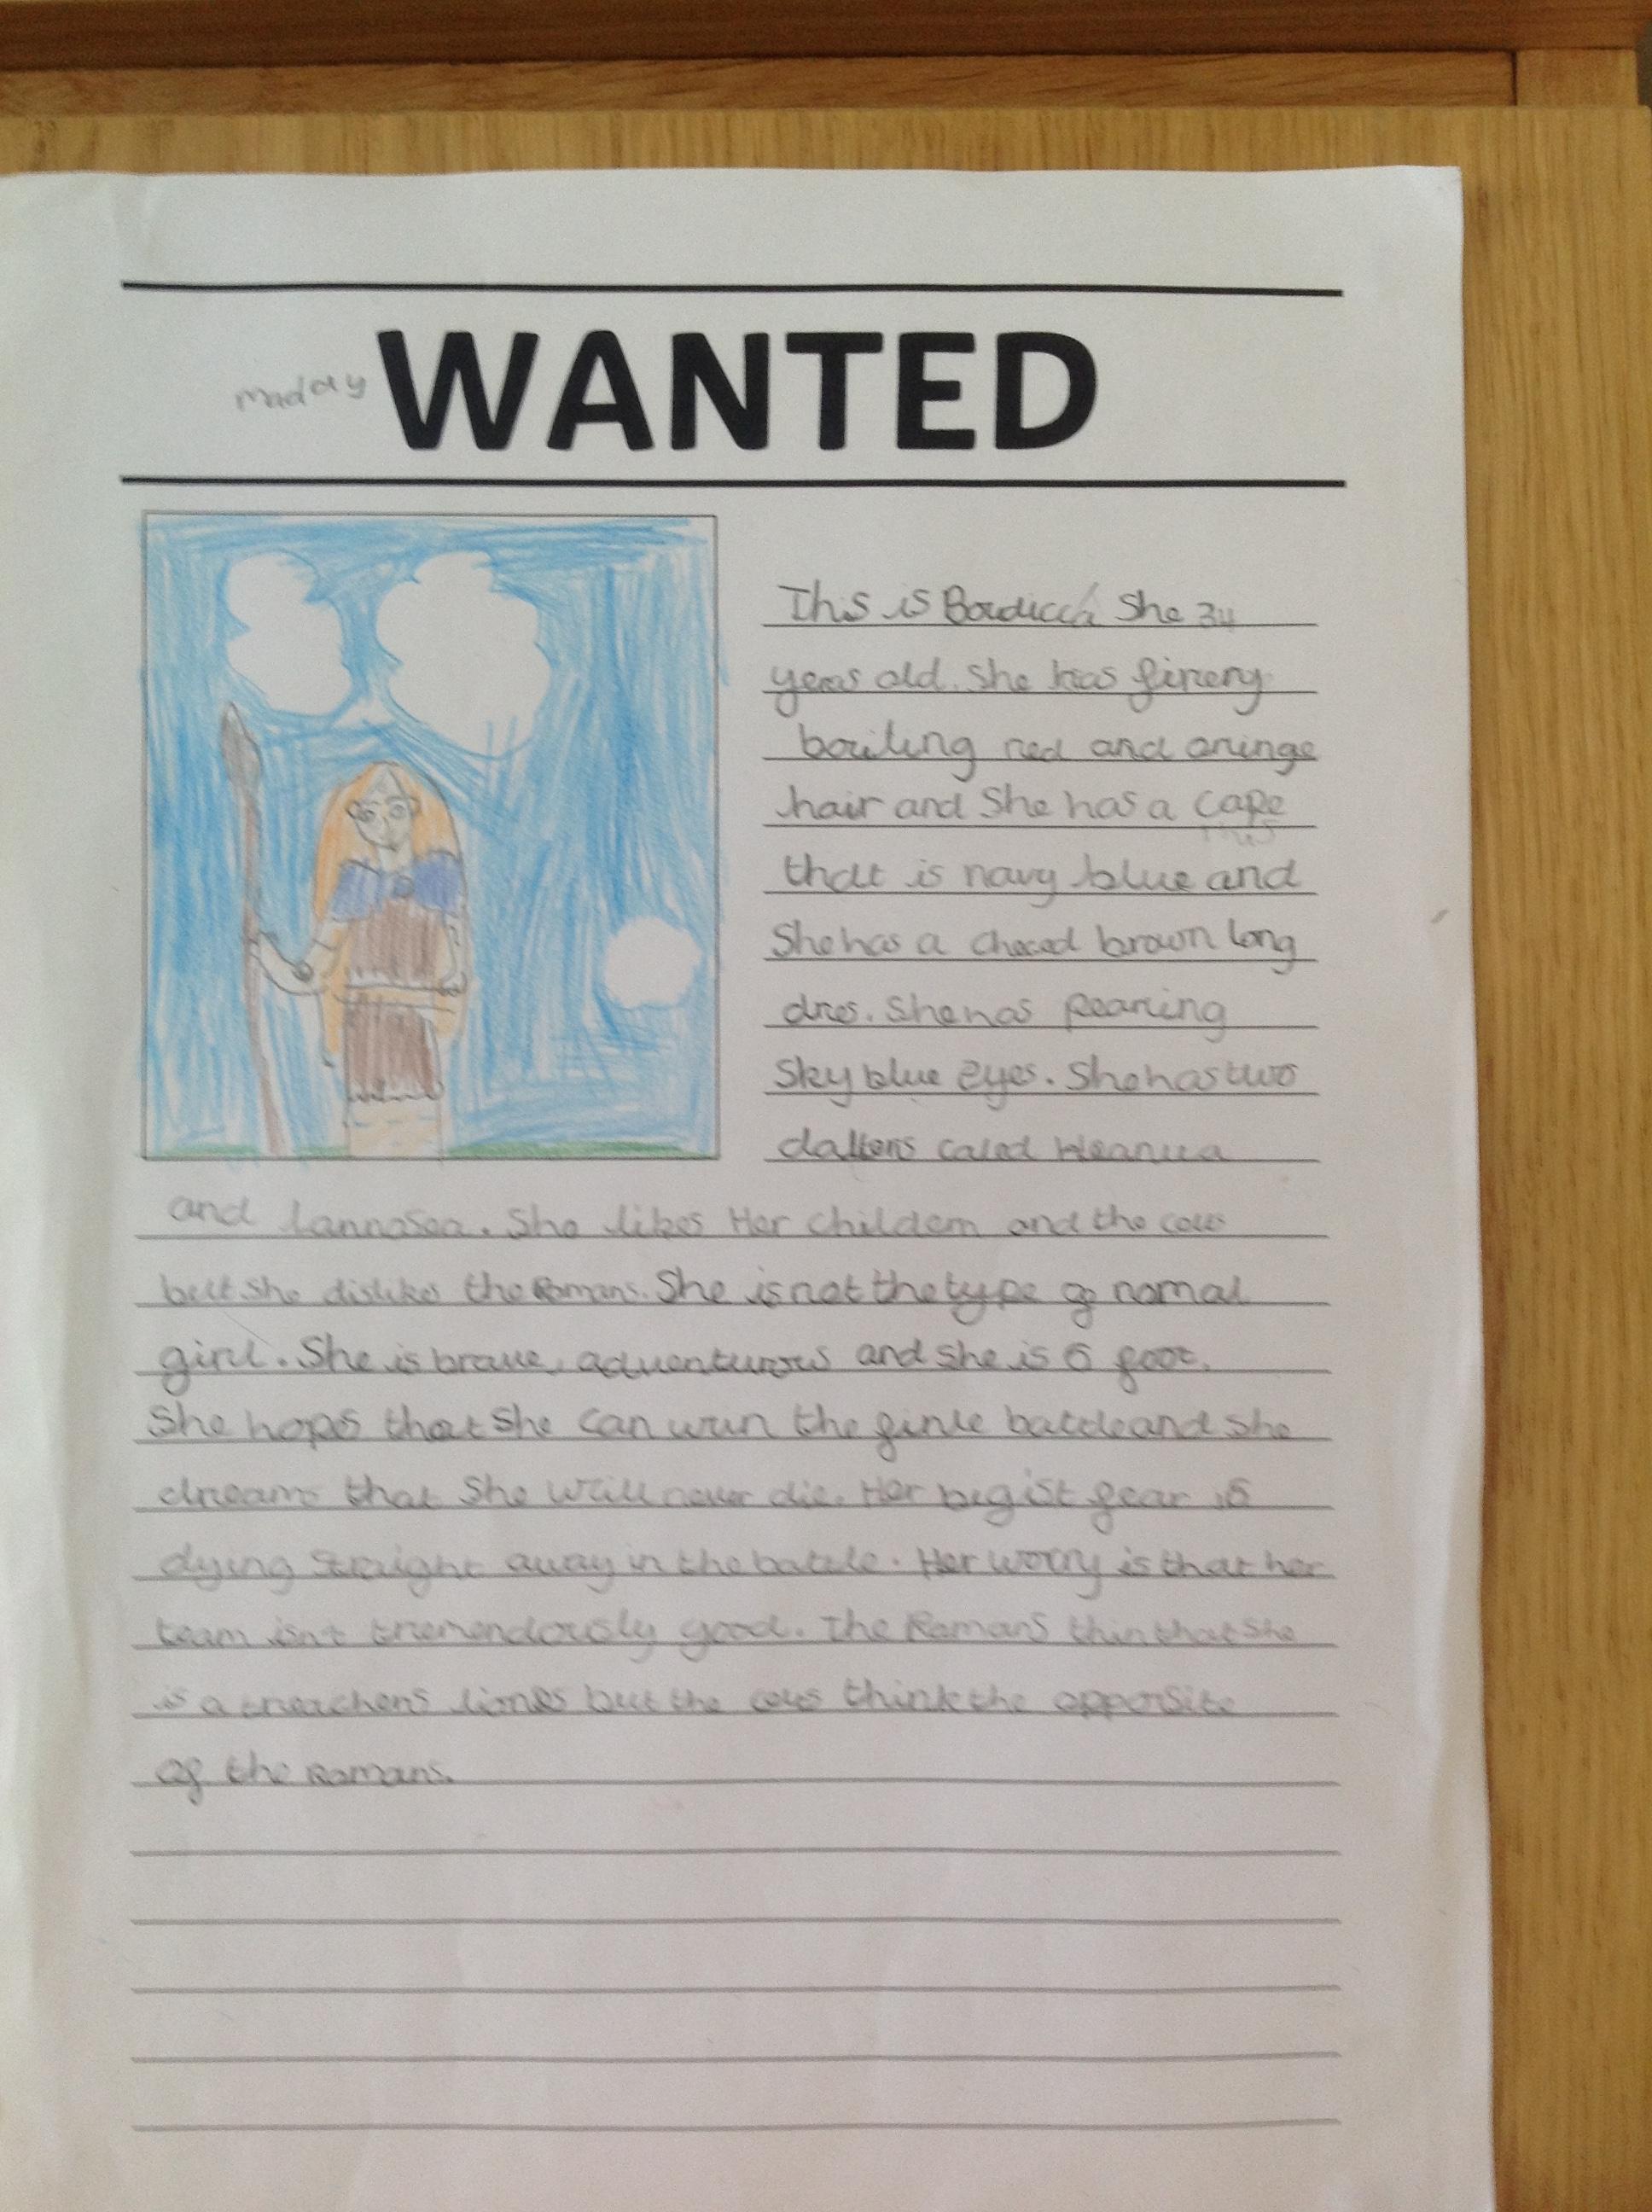 maday
WANTED
This is Boudicca She 34
years old. She has firery
boiling red and oringe
hair and She has a cape
this
that is navy blue and
She has a checed brown long
dres. She has pearing
Sky blue eyes. She has two
dalters caled Heanua
and lannosea. She likes Her childern and the cels
but she dislikes the Romans. She is not the type of nomal
girl. She is brave, adventurous and she is 6 foot.
She hopes that She can win the finle battle and She
dreams that She will never die. Her bigist fear is
dying straight away in the battle. Her worry is that her
team isn't tremendously good. The Romans thin that She
is a treachers liones but the cels think the opposite
of the Romans.